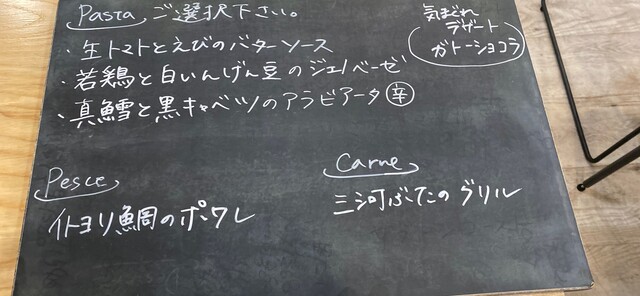 Pasta ご選択下さい。
・生トマトとえびのバターソース
・若鶏と白いんげん豆のジェノベーゼ
・真鱈と黒キャベツのアラビアータ 辛
気まぐれ
デザート
ガトーショコラ
Pesce
イトヨリ鯛のポワレ
Carne
三河ぶたのグリル